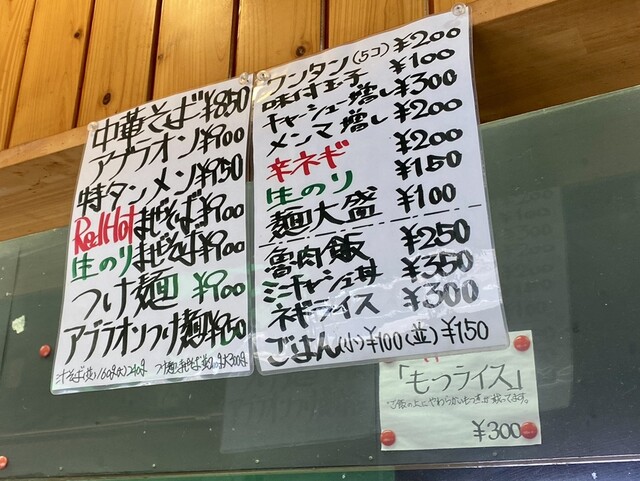 中華そば ¥850
アブラオン ¥900
特タンメン ¥950
Red Hot まぜそば ¥900
生のり まぜそば ¥900
つけ麺 ¥900
アブラオンつけ麺 ¥950
汁そば(並)160g(大)240g
ワンタン(5コ) ¥200
味付玉子 ¥100
チャーシュー増し ¥300
メンマ増し ¥200
辛ネギ ¥200
生のり ¥150
麺大盛 ¥100
魯肉飯 ¥250
ミニチャーシュー丼 ¥350
ネギライス ¥300
ごはん(小)¥100(並)¥150
「もつライス」
ご飯の上にやわらかいもつ煮が載ってます。
¥300